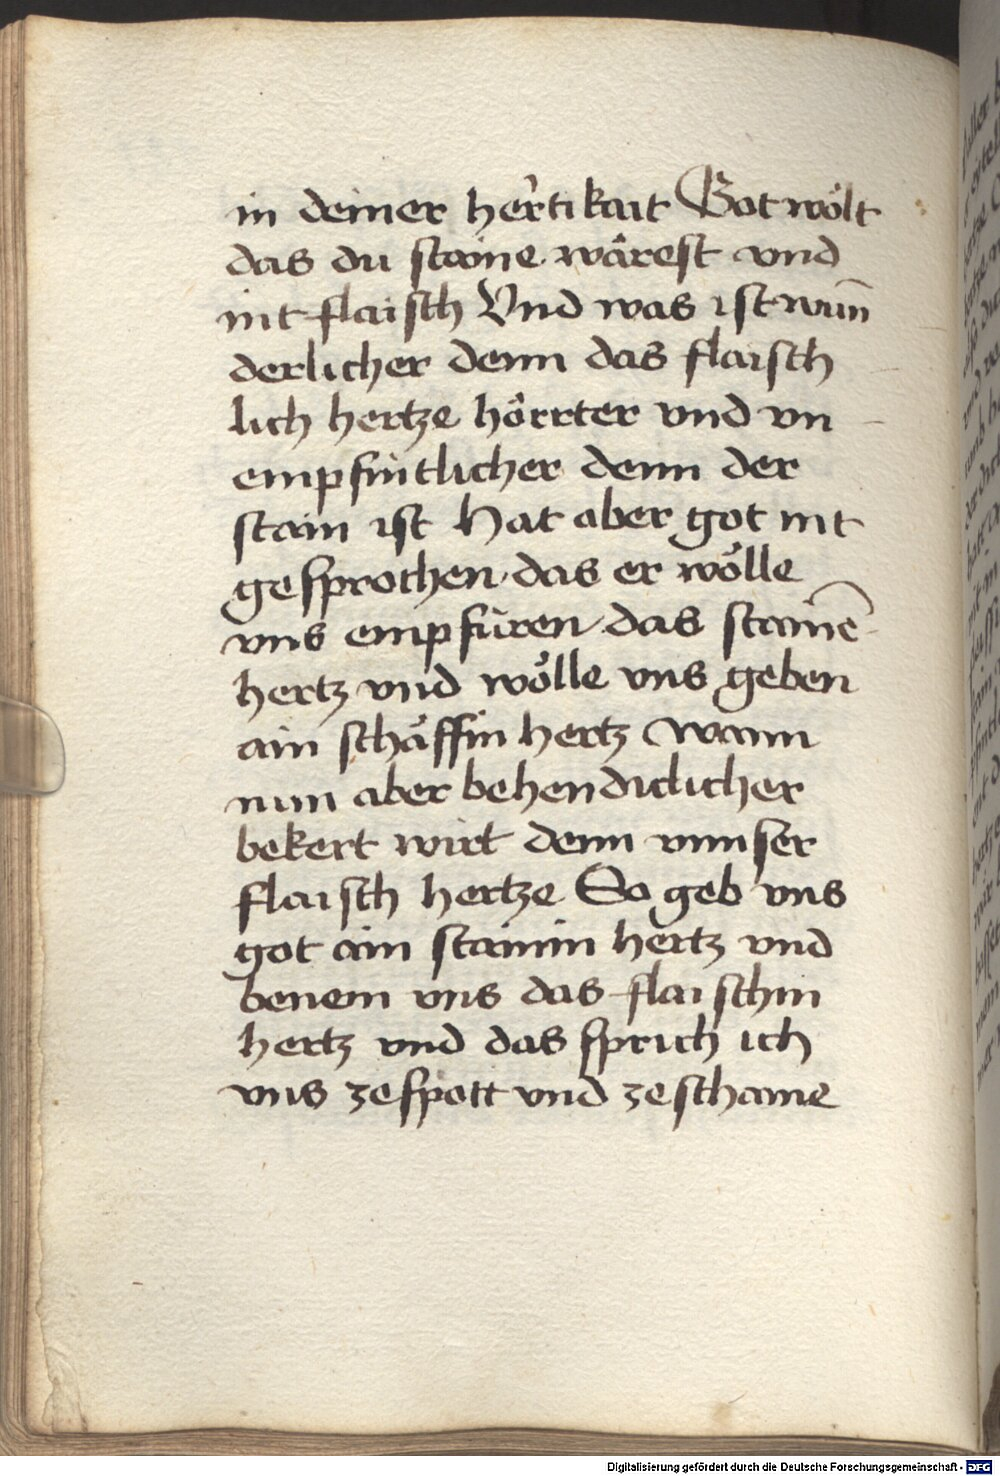 in deiner hertikait Got wölt
das du staine wärest vnd
nit flaisch Vnd was ist wun̄
derlicher denn das flaisch
lich hertze hörrter vnd vn
empfintlicher denn der
stain ist Hat aber got nit
gesprochen das er wölle
vns empfüren das stainē
hertz vnd wölle vns geben
ain schäffin hertz wann
nun aber behendiclicher
bekert wirt denn vnnser
flaisch hertze So geb vns
got ain stainin hertz vnd
benem vns das flaischin
hertz vnd das sprich ich
vns zespott vnd zeschame
Digitalisierung gefördert durch die Deutsche Forschungsgemeinschaft - DFG